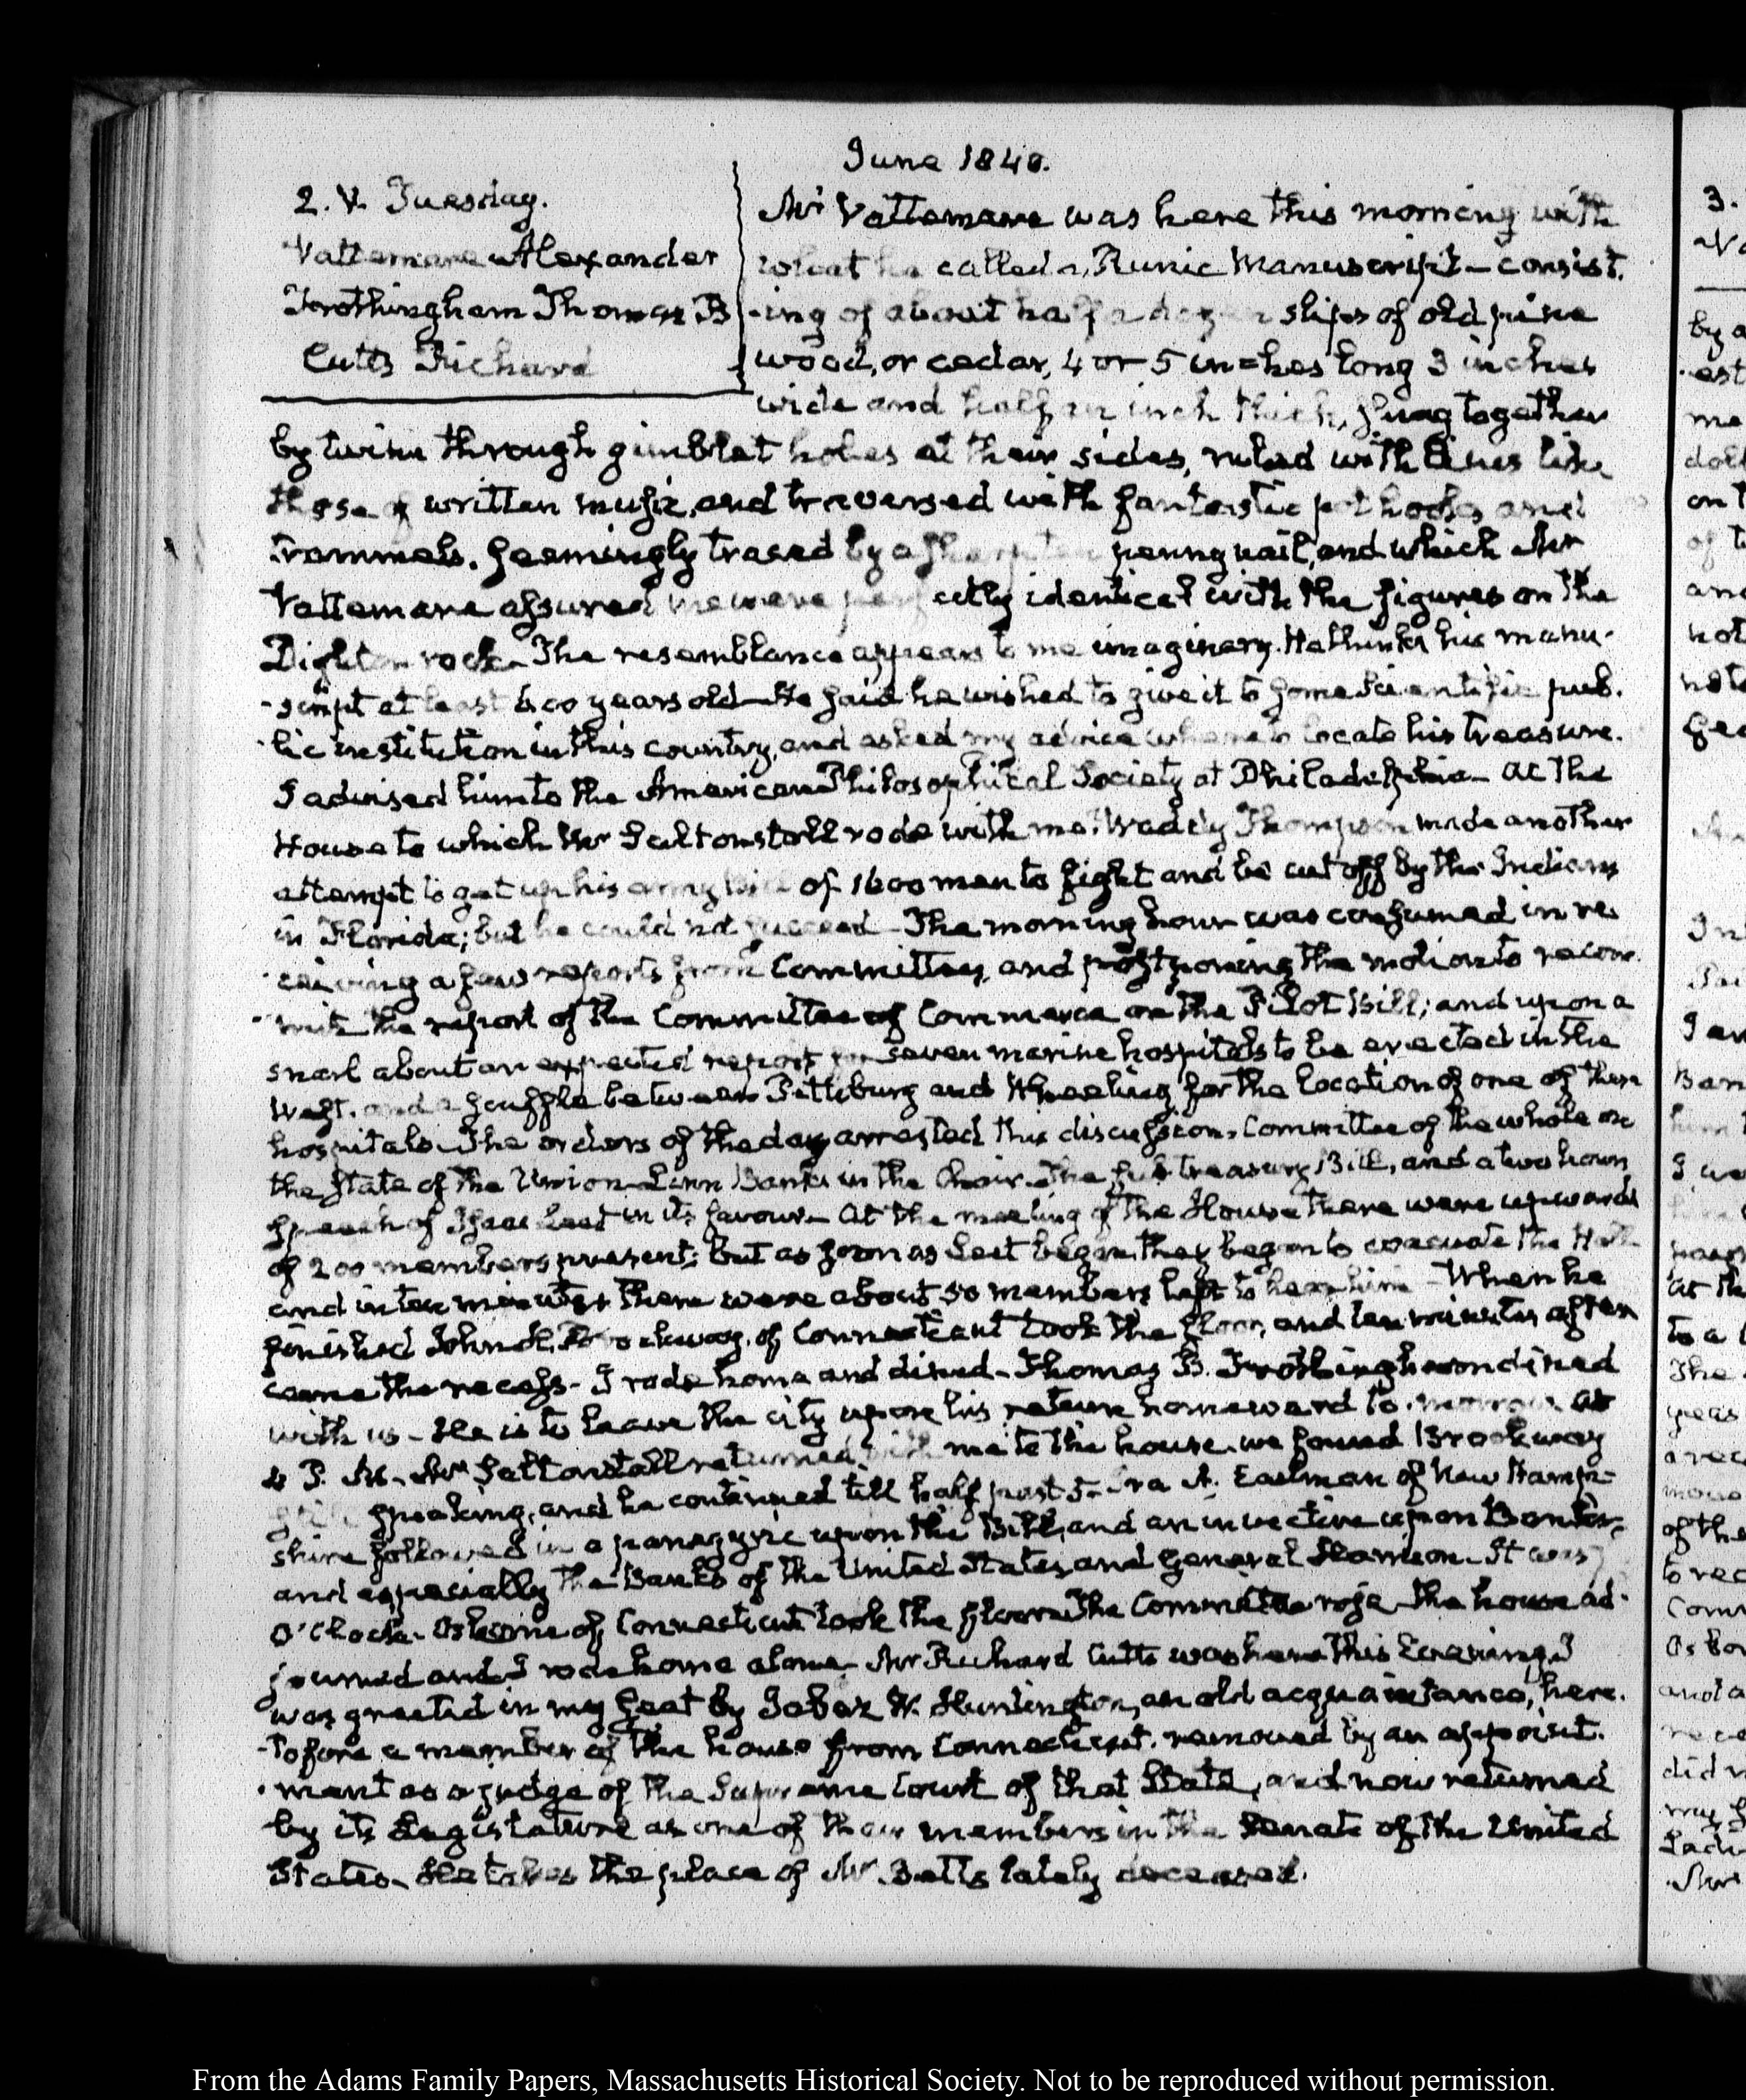 June 1840.
2. V. Tuesday.
Vattemare Alexander
Frothingham Thomas B
Cutts Richard
Mr Vattemare was here this morning with
what he called a Runic Manuscript – consist-
-ing of about half a dozen slips of old pine
wood, or cedar, 4 or 5 inches long 3 inches
wide and half an inch thick, strung together
by twine through gimblet holes at their sides, ruled with lines like
those of written music, and traversed with fantastic pot hooks and
trammels, seemingly traced by a sharp ten penny nail, and which Mr
Vattemare assured me were perfectly identical with the figures on the
Dighton rock – The resemblance appears to me imaginary. He thinks his manu-
-script at least 600 years old – He said he wished to give it to some scientific pub-
-lic institution in this country, and asked my advice where to locate his treasure.
I advised him to the American Philosophical Society at Philadelphia – At the
House to which Mr Saltonstall rode with me. Waddy Thompson made another
attempt to get up his army bill of 1600 men to fight and be cut off by the Indians
in Florida; but he could not succeed – The morning hour was consumed in re-
-ceiving a few reports from Committees, and postponing the motion to recom-
-mit the report of the Committee of Commerce on the Pilot Bill; and upon a
snarl about an expected report for seven marine hospitals to be erected in the
West, and a scuffle between Pittsburg and Wheeling for the location of one of these
hospitals – The orders of the day arrested this discussion. Committee of the whole on
the state of the Union – Linn Banks in the Chair – The sub treasury Bill, and a two hours
speech of Isaac Leet in its favour – At the meeting of the House there were upwards
of 200 members present; but as soon as Leet began they began to evacuate the Hall
and in ten minutes there were about 50 members left to hear him – When he
finished John H. Brockway, of Connecticut took the floor, and ten minutes after
came the recess – I rode home and dined – Thomas B. Frothingham dined
with us – He is to leave the city upon his return homeward to-morrow. At
4 P. M. – Mr Saltonstall returned with me to the house. we found Brockway
still speaking, and he continued till half past 5 – Ira A. Eastman of New Hamp-
shire followed in a panegyric upon the Bill, and an invective upon Banks,
and especially the Banks of the United States, and General Harrison – It was 7
O'Clock – Osborne of Connecticut took the floor – The Committee rose – the house ad-
journed and I rode home alone – Mr Richard Cutts was here this Evening. I
was greeted in my seat by Jabez W. Huntington, an old acquaintance, here-
-tofore a member of the house from Connecticut, removed by an appoint-
-ment as a judge of the Supreme Court of that State, and now returned
by its Legislature as one of their members in the Senate of the United
States – He takes the place of Mr. Betts lately deceased.
From the Adams Family Papers, Massachusetts Historical Society. Not to be reproduced without permission.